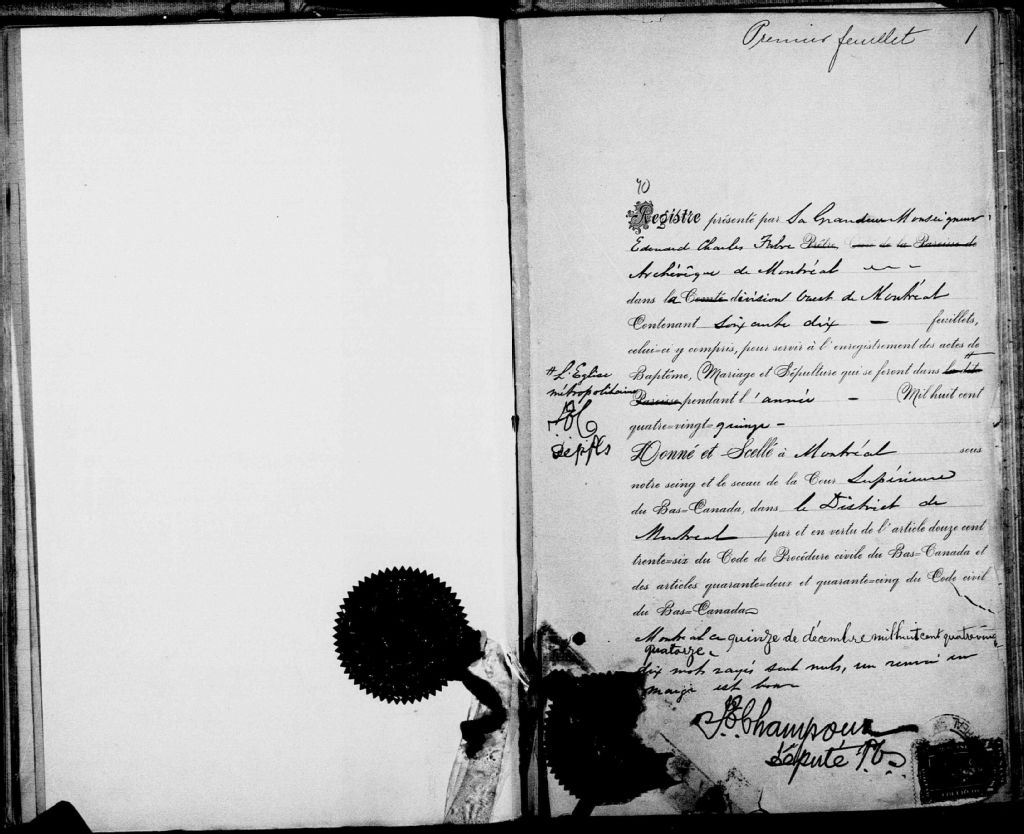 Premier feuillet 1
70
Registre présenté par Sa Grandeur Monseigneur
Edouard Charles Fabre Prêtre, Curé de la Paroisse de
Archévêque de Montréal
dans la Comté division Ouest de Montréal
Contenant soixante dix — feuillets,
celui=ci y compris, pour servir à l'enregistrement des actes de
Baptême, Mariage et Sépulture qui se feront dans la dite #
Paroisse pendant l'année — Mil huit cent
quatre=vingt=quinze —
# L'Eglise
métropolitaine
Donné et Scellé à Montréal sous
notre seing et le sceau de la Cour Supérieure
du Bas=Canada, dans le District de
Montréal par et en vertu de l'article douze cent
trente=six du Code de Procédure civile du Bas=Canada et
des articles quarante=deux et quarante=cinq du Code civil
du Bas=Canada
Montréal ce quinze de décembre mil huit cent quatre vingt
quatorze —
dix mots rayés sont nuls, un renvoi en
marge est bon
Champoux
Député P.